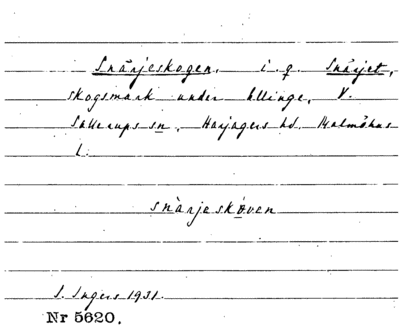 Snärjeskogen, i. q. Snärjet,
skogsmark under Ellinge, V.
Sallerups sn, Harjagers hd. Malmöhus
l.
snàrjeskóven
I. Ingers 1931.
Nr 5620.